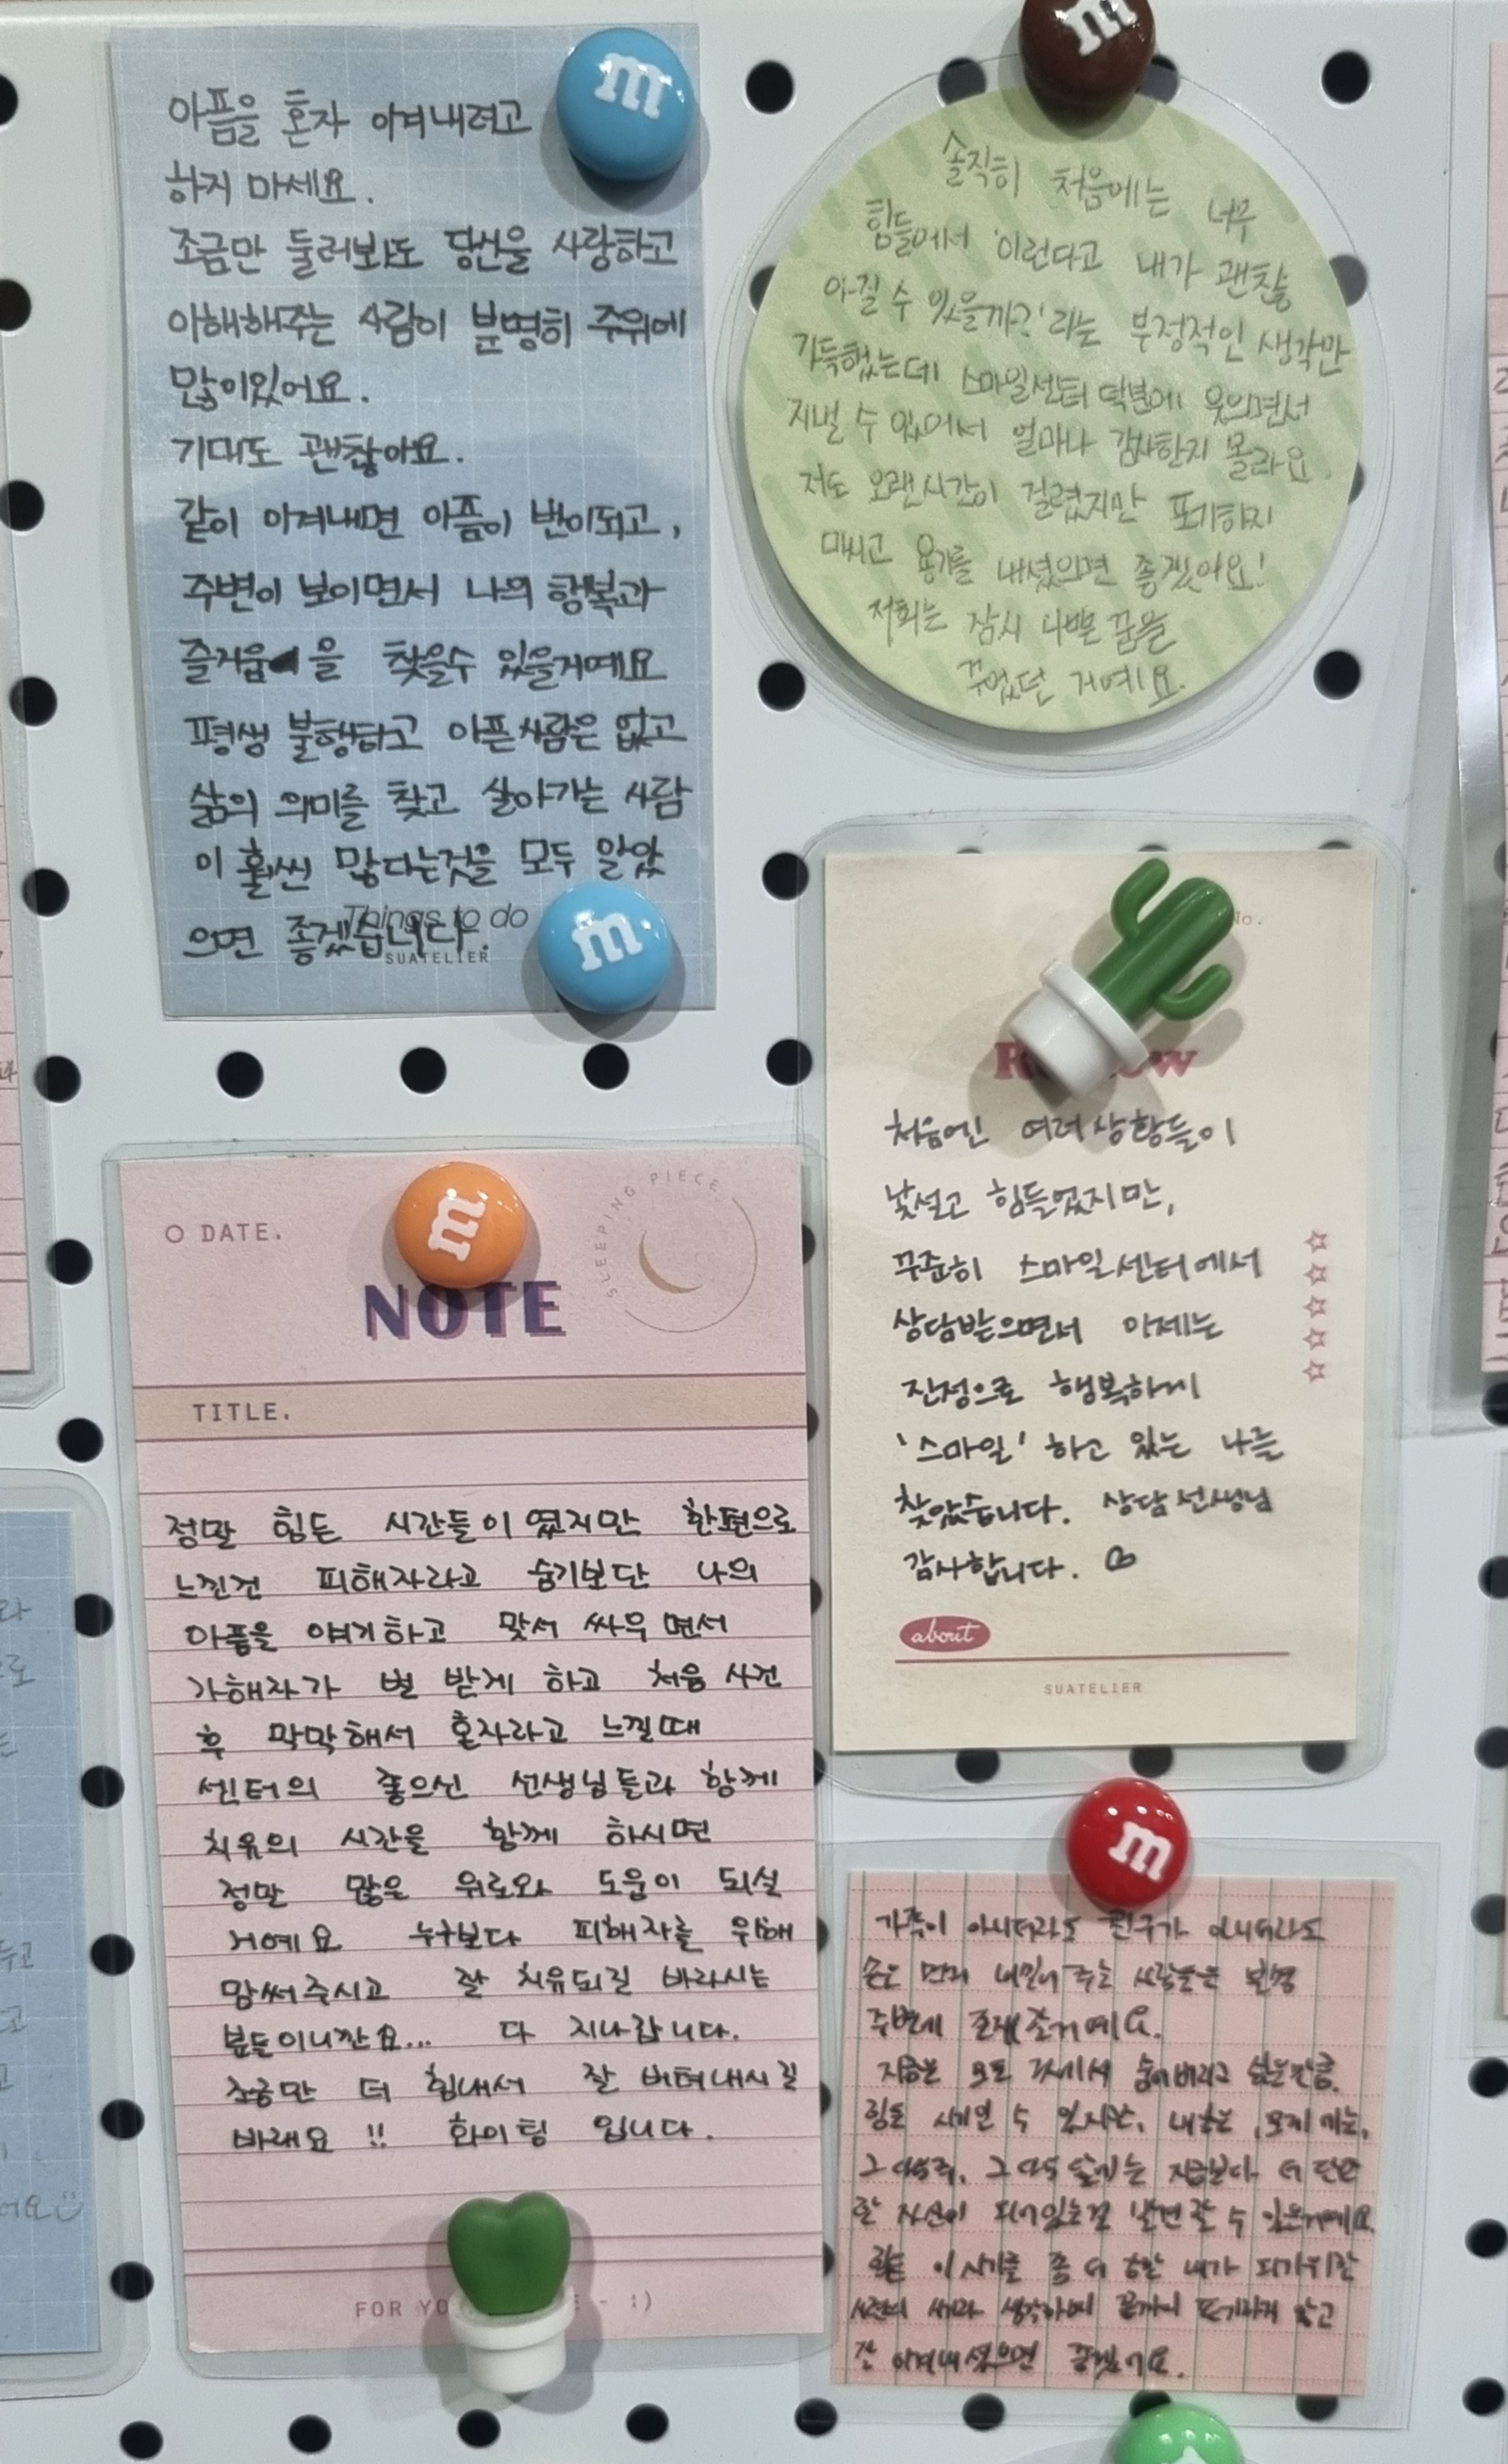 아픔을 혼자 이겨내려고
하지 마세요.
조금만 둘러보아도 당신을 사랑하고
이해해주는 사람이 분명히 주위에
많이있어요.
기대도 괜찮아요.
같이 이겨내면 아픔이 반이되고,
주변이 보이면서 나의 행복과
즐거움을 찾을수 있을거예요
평생 불행하고 아픈사람은 없고
삶의 의미를 찾고 살아가는 사람
이 훨씬 많다는것을 모두 알았
으면 좋겠습니다.
Things to do
SUATELIER
솔직히 처음에는 너무
힘들어서 '이런다고 내가 괜찮
아질 수 있을까?'라는 부정적인 생각만
가득했는데 스마일센터 덕분에 웃으면서
지낼 수 있어서 얼마나 감사한지 몰라요.
저도 오랜시간이 걸렸지만 포기하지
마시고 용기를 내셨으면 좋겠어요!
저희는 잠시 나쁜 꿈을
꾸었던 거예요.
No.
처음엔 여러상황들이
낯설고 힘들었지만,
꾸준히 스마일센터에서
상담받으면서 이제는
진정으로 행복하게
'스마일' 하고 있는 나를
찾았습니다. 상담선생님
감사합니다.
about
SUATELIER
DATE.
SLEEPING PIECE
NOTE
TITLE.
정말 힘든 시간들이였지만 한편으로
느낀건 피해자라고 숨기보단 나의
아픔을 얘기하고 맞서 싸우면서
가해자가 벌 받게 하고 처음 사건
후 막막해서 혼자라고 느낄때
센터의 좋으신 선생님들과 함께
치유의 시간을 함께 하시면
정말 많은 위로와 도움이 되실
거예요 누구보다 피해자를 위해
맘써주시고 잘 치유되길 바라시는
분들이니깐요... 다 지나갑니다.
조금만 더 힘내서 잘 버텨내시길
바래요 !! 화이팅 입니다.
FOR YO
- :)
가족이 아니더라도 친구가 아니더라도
손을 먼저 내밀어주는 사람들은 분명
주변에 존재할거예요.
지금은 모든 것에서 숨어버리고 싶은만큼
힘든 시기일 수 있지만, 내일은, 모레에는,
그 다음주, 그 다음 달에는 지금보다 더 단단
한 자신이 되어있는걸 발견할 수 있을거예요.
힘든 이 시기를 좀 더 강한 내가 되기위한
시련의 생각하며 끝까지 포기하지 않고
잘 이겨내셨으면 좋겠어요.